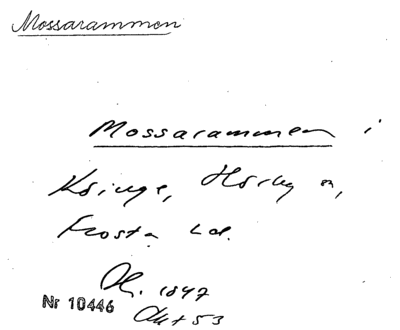 Mossarammen
Mossarammen i
Hörby sn,
Frosta hd.
1847
Nr 10446
Akt 53